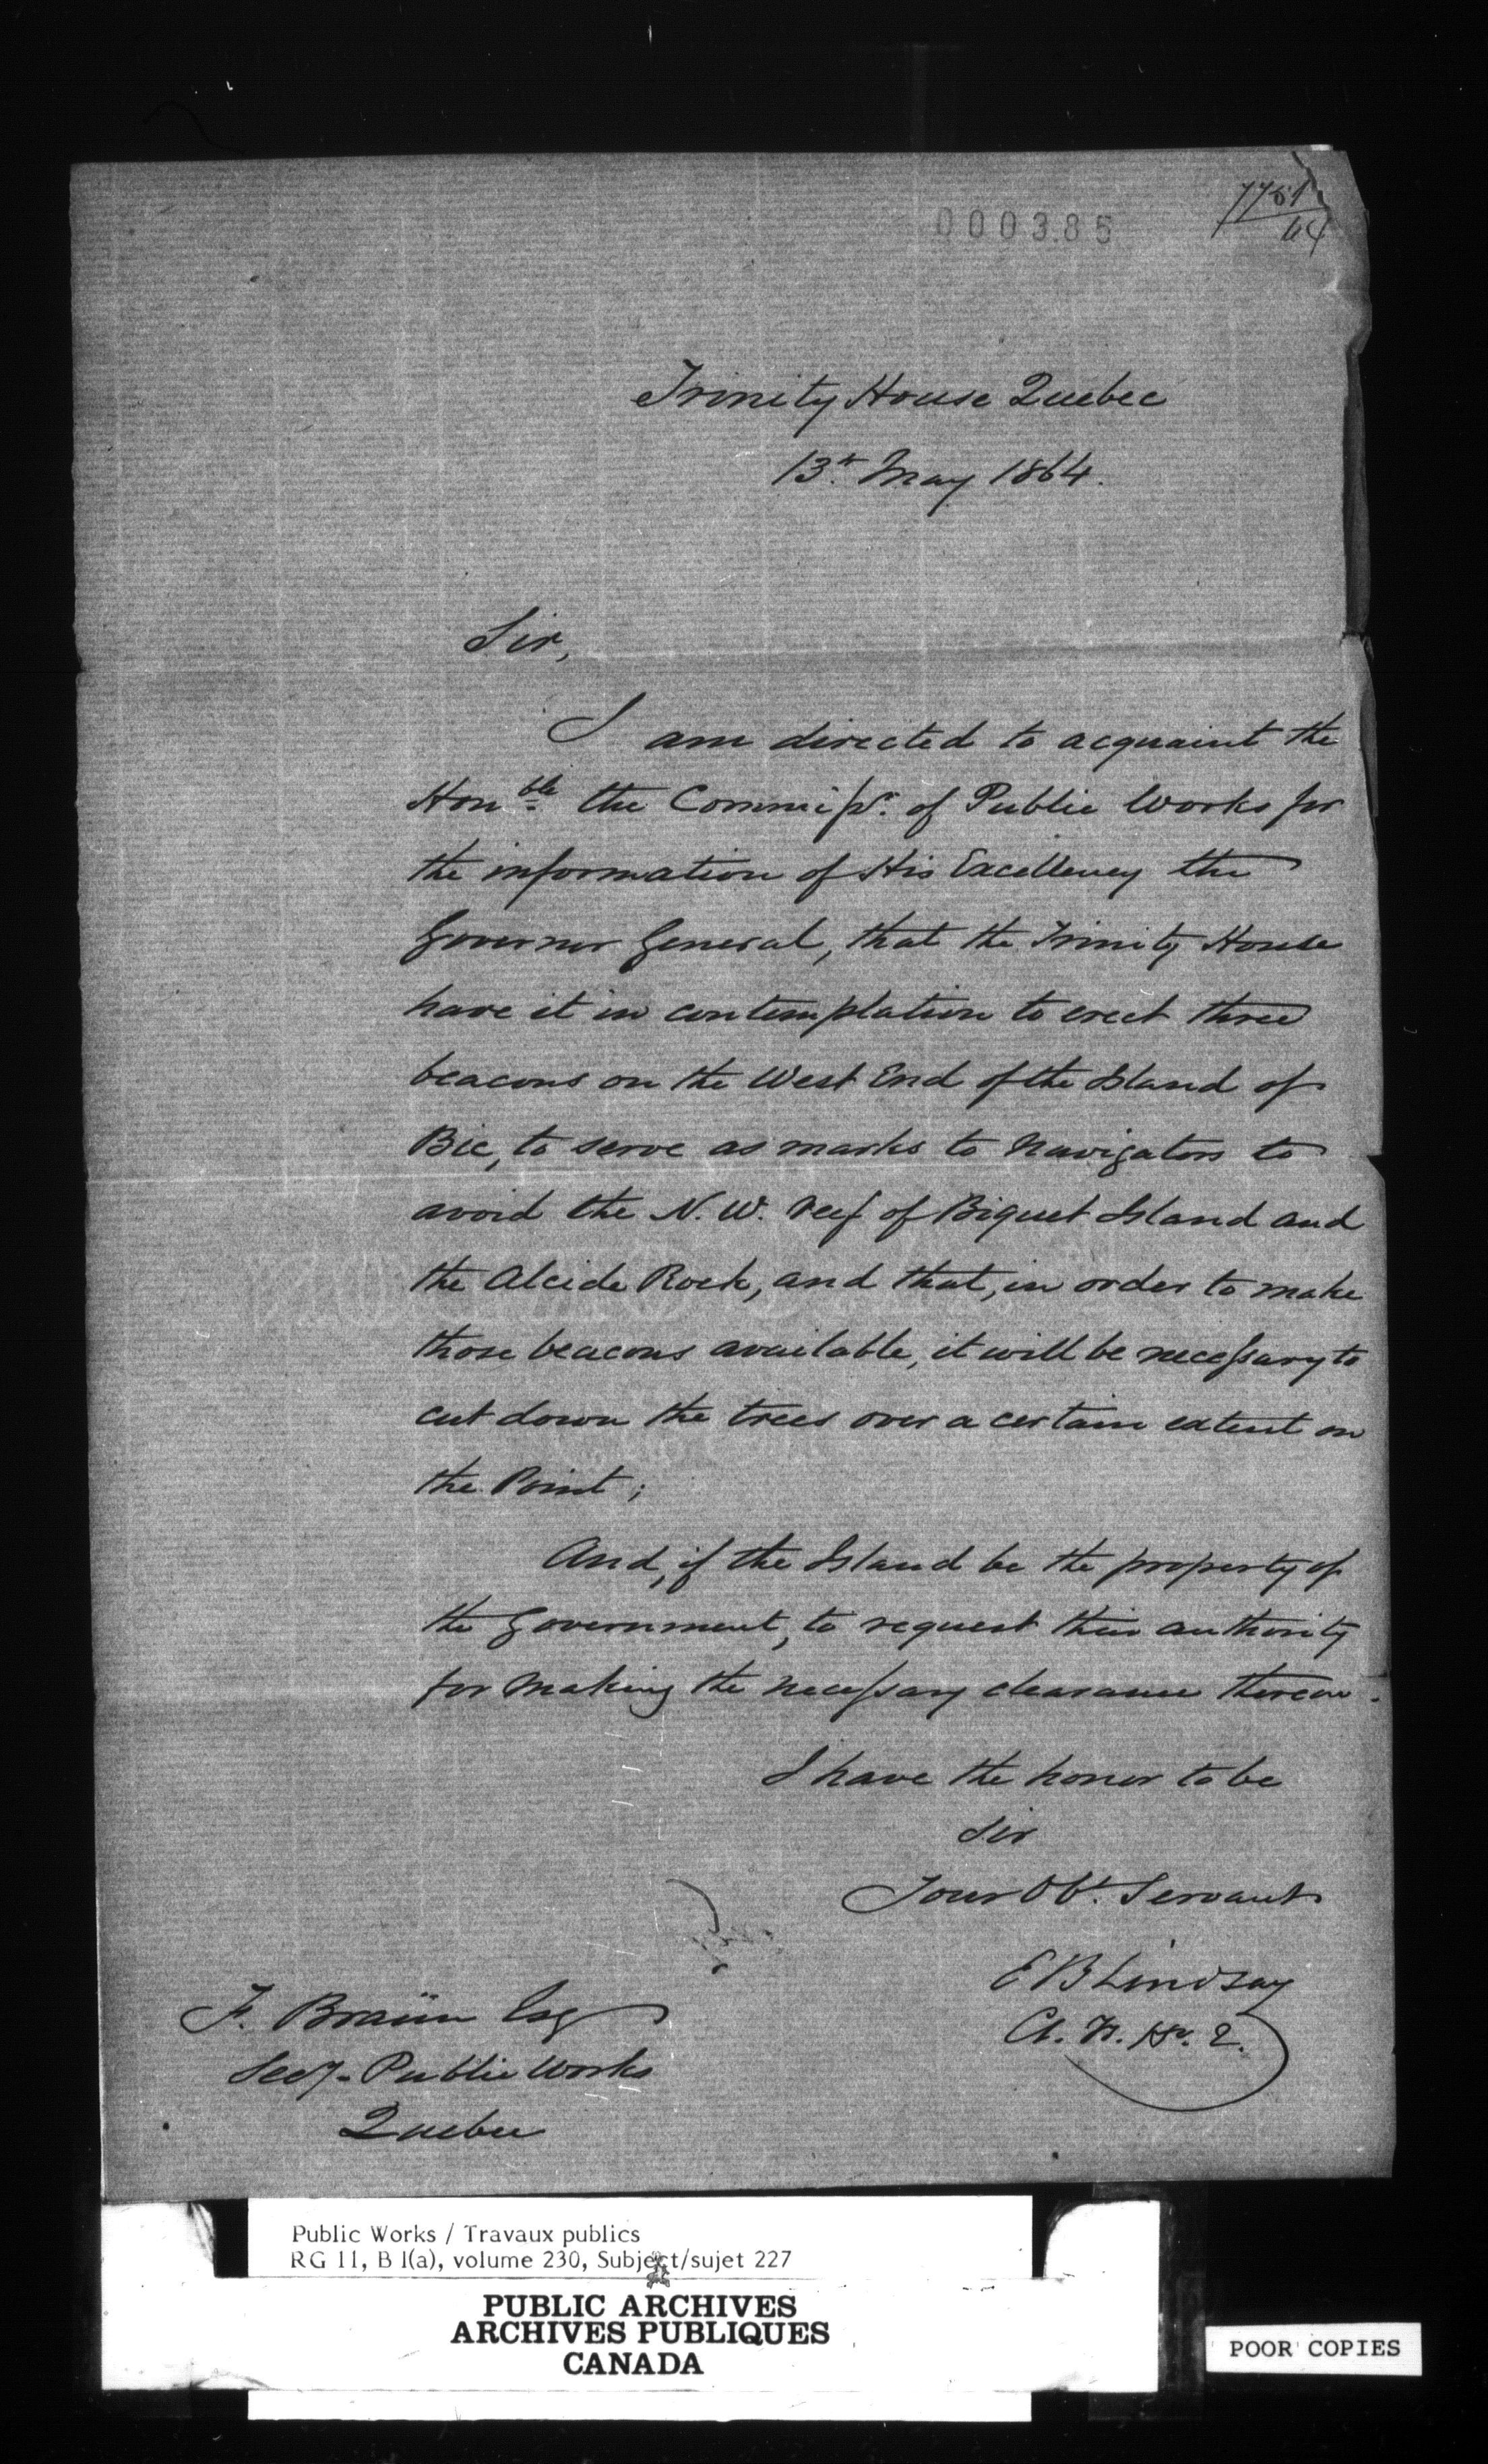 7781/64
000385
Trinity House Quebec
13th May 1864.
Sir,
I am directed to acquaint the
Honble the Commissr. of Public Works for
the information of His Excellency the
Governor General, that the Trinity House
have it in contemplation to erect three
beacons on the West End of the Island of
Bic, to serve as marks to Navigators to
avoid the N.W. reef of Biquet Island and
the Alcide Rock, and that, in order to make
those beacons available, it will be necessary to
cut down the trees over a certain extent on
the Point;
And, if the Island be the property of
the Government, to request their authority
for making the necessary clearance thereon.
I have the honor to be
Sir
Your Obt. Servant
E B Lindsay
Cl. T. H. Q.
F. Braün Esq
Secy. Public Works
Quebec
Public Works / Travaux publics
RG 11, B 1(a), volume 230, Subject/sujet 227
PUBLIC ARCHIVES
ARCHIVES PUBLIQUES
CANADA
POOR COPIES